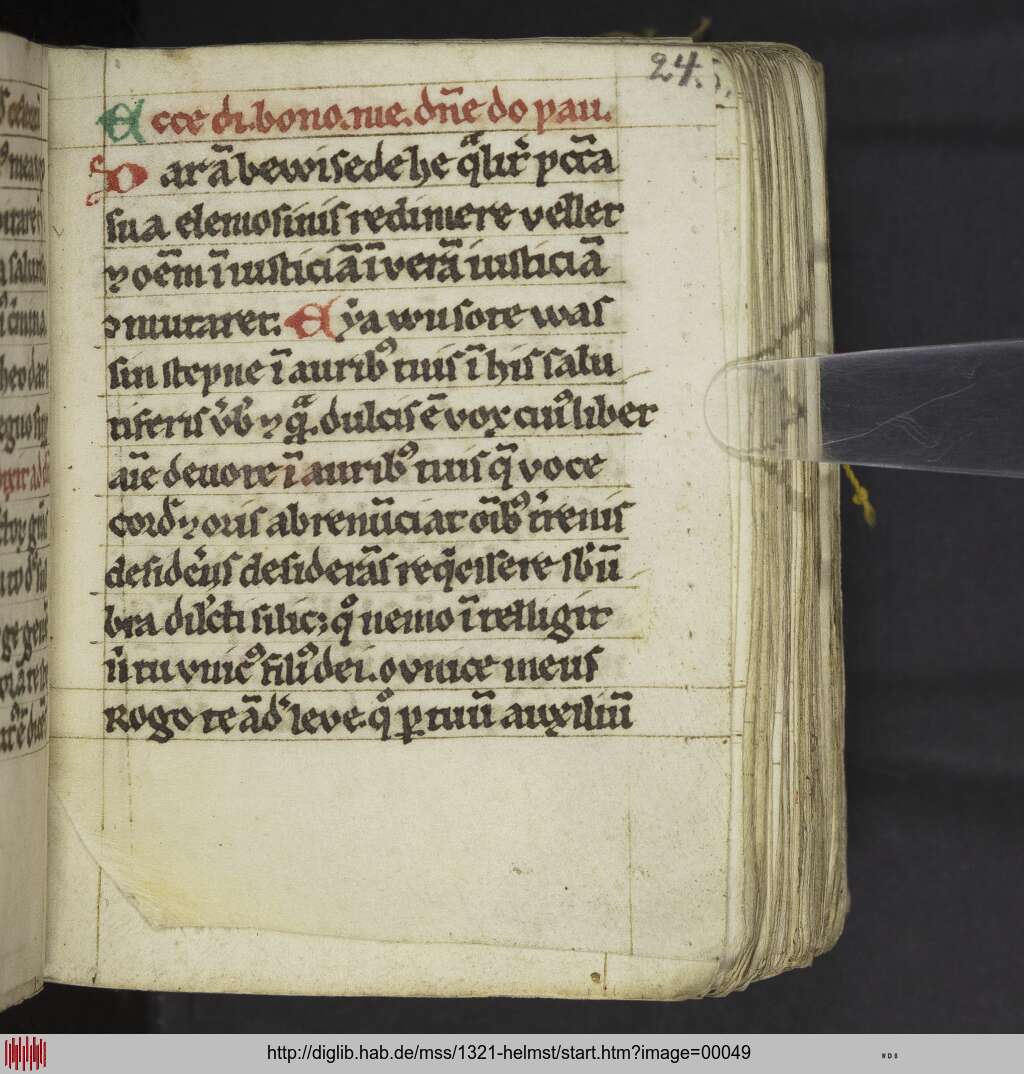 24.
Ecce di. bono. me. dn̄e do pau.
Dar ā bewisede he q̄lit̾ pccā
sua elemosinis redimere vellet
⁊ oēm īiusticiā ī verā iusticiā
ɔmutaret. Eẏa wu sote was
sin stepne ī auribꝰ tuis ī his salu
tiferis v̾b̾ ⁊ qͣ. dulcis ē vox cuiꝰ liber
aīe deuote ī auribꝰ tuis q̄ voce
cord̾ ⁊ oris abrenūciat oībꝰ t̾renis
desideriis desiderās reqͥescere sb̾ ū
bra dil̾cti silicꝫ qͦ nemo ītelligit
n̄ tu vnicꝰ filiꝰ dei. o vnice meus
Rogo te ā dͦ leve. qͦ ꝑ tuū auxiliū
http://diglib.hab.de/mss/1321-helmst/start.htm?image=00049